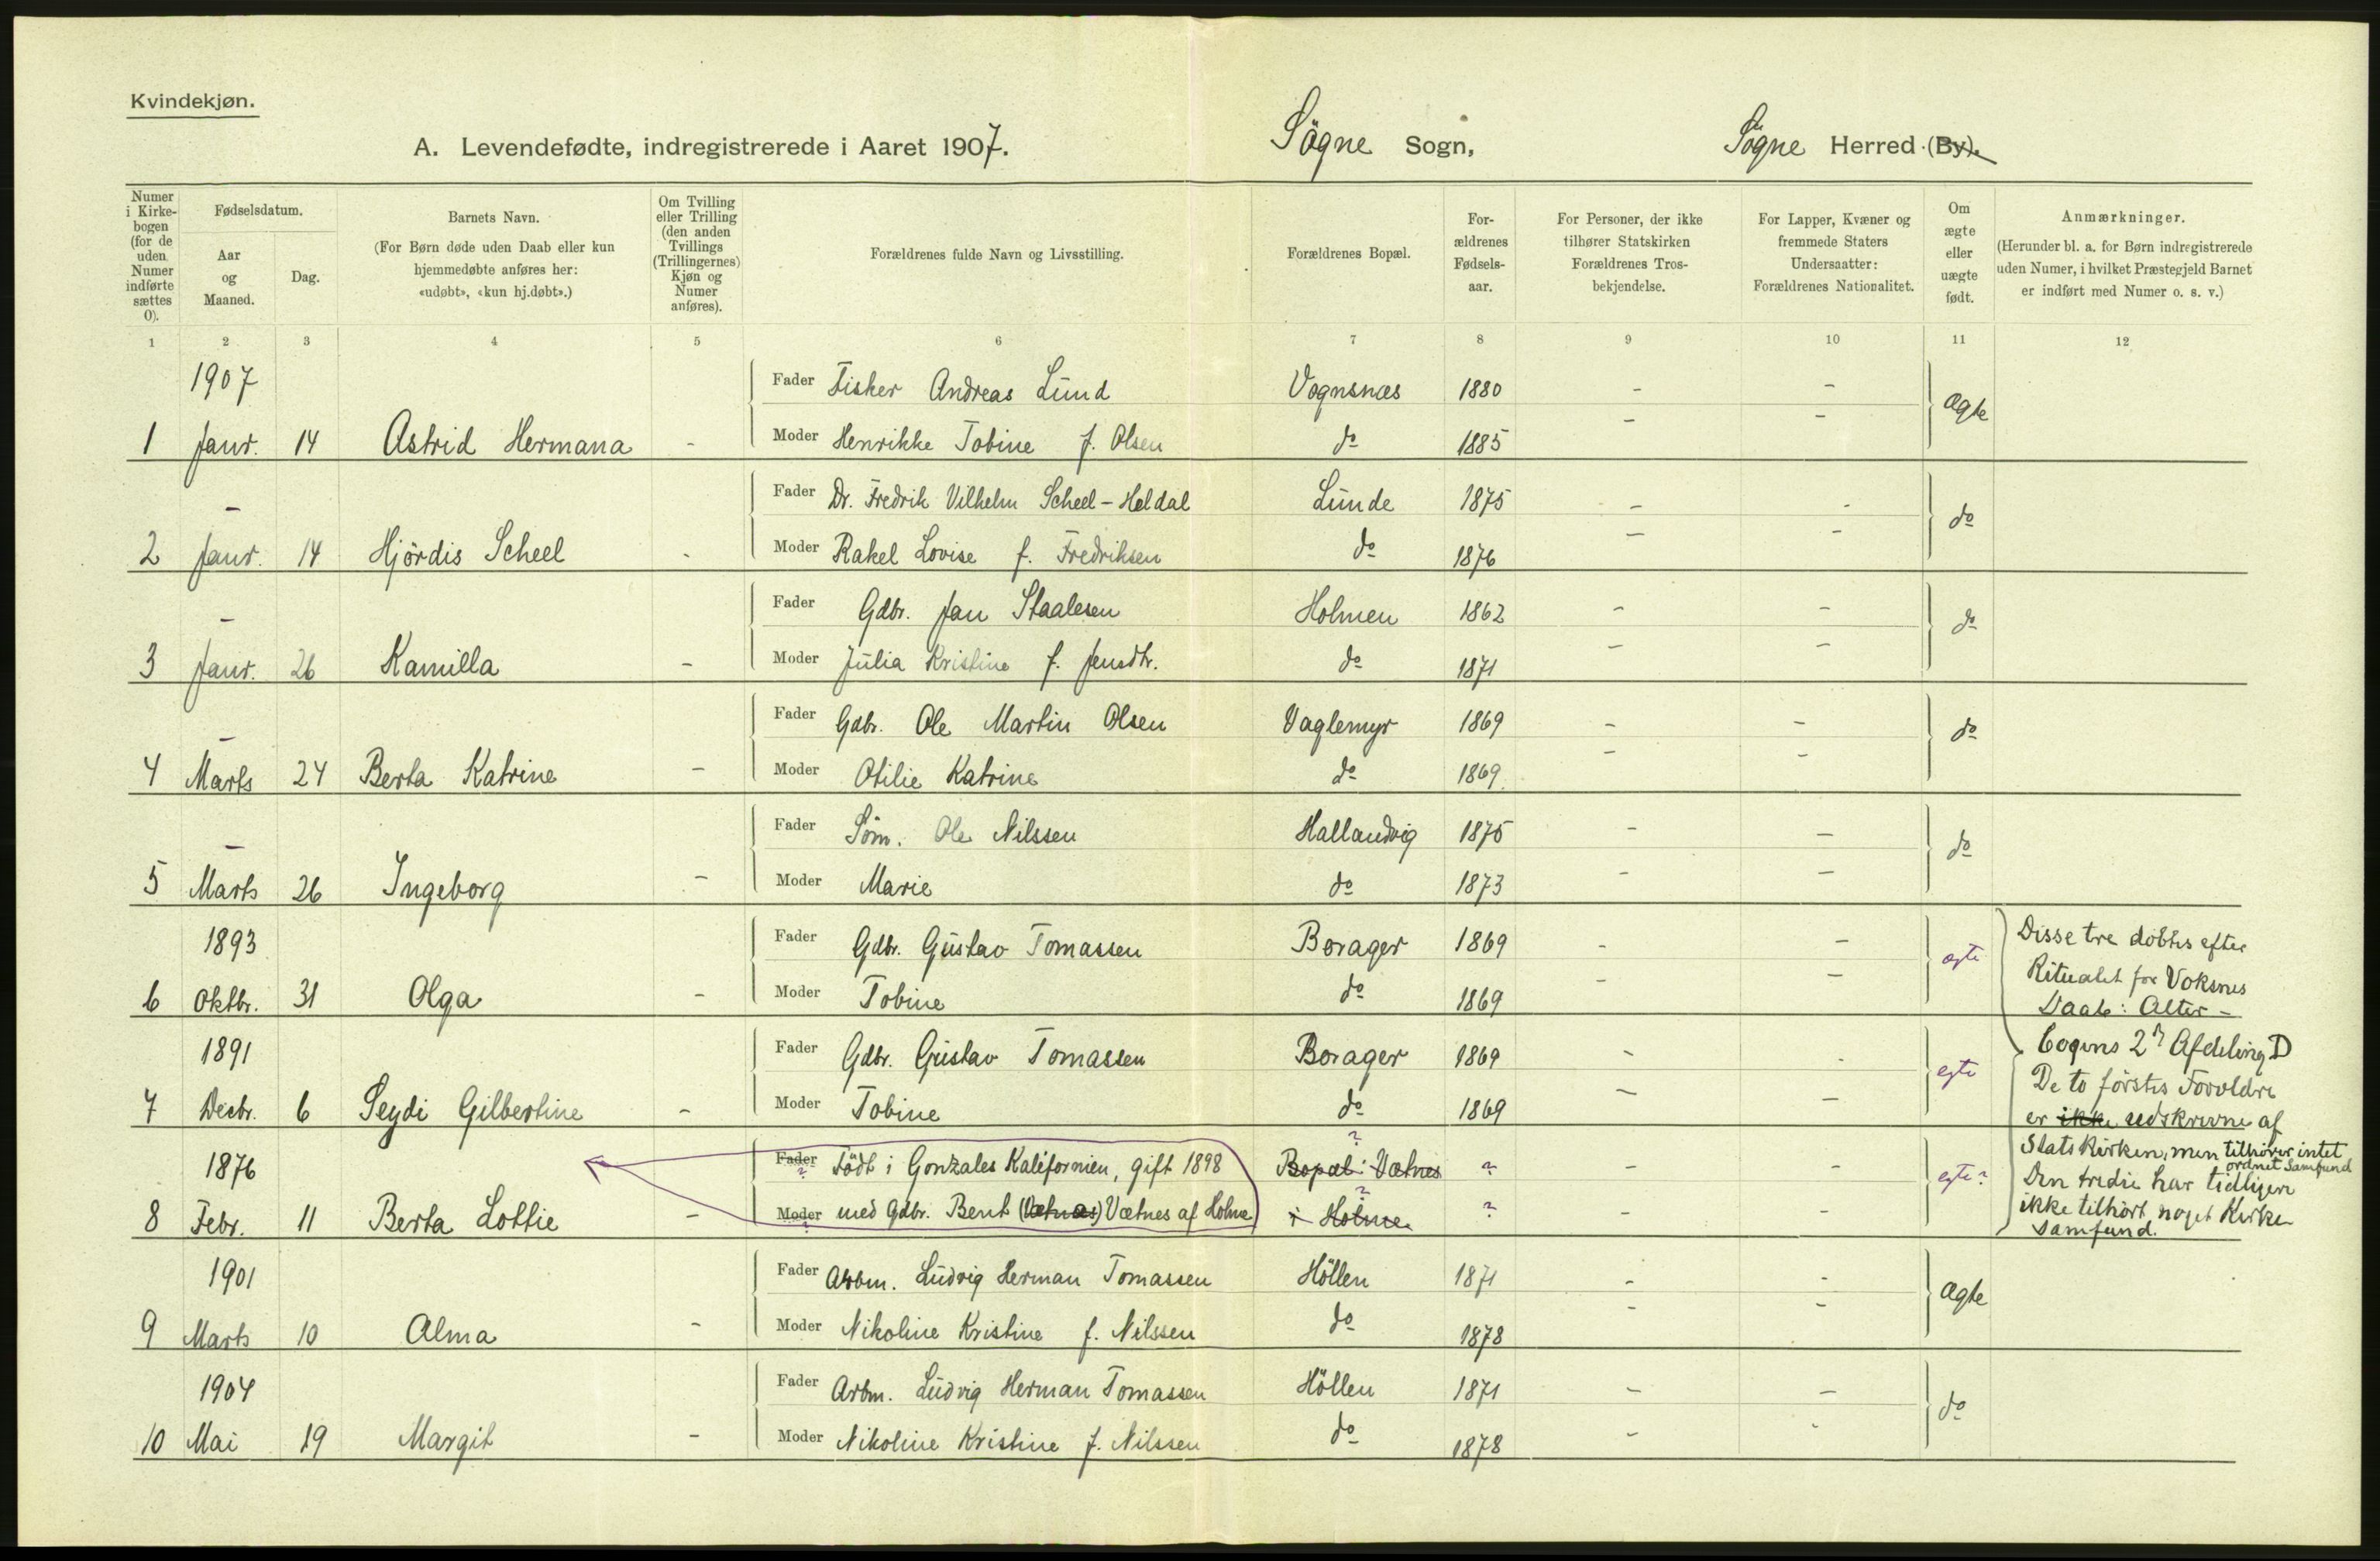 Kvindekjøn.
A. Levendefødte, indregistrerede i Aaret 1907.
Søgne Sogn, Søgne Herred (By).
Numer i Kirkebogen (for de uden Numer indførte sættes 0).
Fødselsdatum.
Aar og Maaned.
Dag.
Barnets Navn.
(For Børn døde uden Daab eller kun hjemmedøbte anføres her: «udøbt», «kun hj.døbt».)
Om Tvilling eller Trilling (den anden Tvillings (Trillingernes) Kjøn og Numer anføres).
Forældrenes fulde Navn og Livsstilling.
Forældrenes Bopæl.
Forældrenes Fødselsaar.
For Personer, der ikke tilhører Statskirken Forældrenes Trosbekjendelse.
For Lapper, Kvæner og fremmede Staters Undersaatter: Forældrenes Nationalitet.
Om ægte eller uægte født.
Anmærkninger.
(Herunder bl. a. for Børn indregistrerede uden Numer, i hvilket Præstegjeld Barnet er indført med Numer o. s. v.)
1 2 3 4 5 6 7 8 9 10 11 12
1907 Fader Fisker Andreas Lund Vognsnæs 1880 - - Ægte
1 Janr. 14 Astrid Hermana - Moder Henrikke Tobine f. Olsen do 1885 - -
- Fader Dr. Fredrik Vilhelm Scheel-Heldal Lunde 1875 - - do
2 Janr. 14 Hjördis Scheel - Moder Rakel Lovise f. Fredriksen do 1876 - -
- Fader Gdbr. Jan Staalesen Holmen 1862 - - do
3 Janr. 26 Kamilla - Moder Julia Kristine f. Jensdtr. do 1871 - -
- Fader Gdbr. Ole Martin Olsen Vaglemyr 1869 - - do
4 Marts 24 Berta Katrine - Moder Otilie Katrine do 1869 - -
- Fader Söm. Ole Nilssen Hallandvig 1875 - - do
5 Marts 26 Ingeborg - Moder Marie do 1873 - -
1893 Fader Gdbr. Gustav Tomassen Borager 1869 - - egte
6 Oktbr. 31 Olga - Moder Tobine do 1869 - -
1891 Fader Gdbr. Gustav Tomassen Borager 1869 - - egte
7 Decbr. 6 Seydi Gilbertine - Moder Tobine do 1869 - -
1876 Fader ? Födt i Gonzales Kalifornien, gift 1898 Bopæl: Vætnes ? ? - - egte?
8 Febr. 11 Berta Lottie - Moder ? med Gdbr. Bent (Vætnes) Vætnes af Holme i Holme ? ? - -
Disse tre döbtes efter
Ritualet for Voksnes
Daab: Alter-
bogens 2n Afdeling D
De to förstes Forældre
er ikke udskrevne af
Statskirken, men tilhører intet
ordnet Samfund
Den tredie har tidligere
ikke tilhört noget Kirke
samfund.
1901 Fader Arbm. Ludvig Herman Tomassen Höllen 1871 - - Ægte
9 Marts 10 Alma - Moder Nikoline Kristine f. Nilssen do 1878 - -
1904 Fader Arbm. Ludvig Herman Tomassen Höllen 1871 - - do
10 Mai 19 Margit - Moder Nikoline Kristine f. Nilssen do 1878 - -